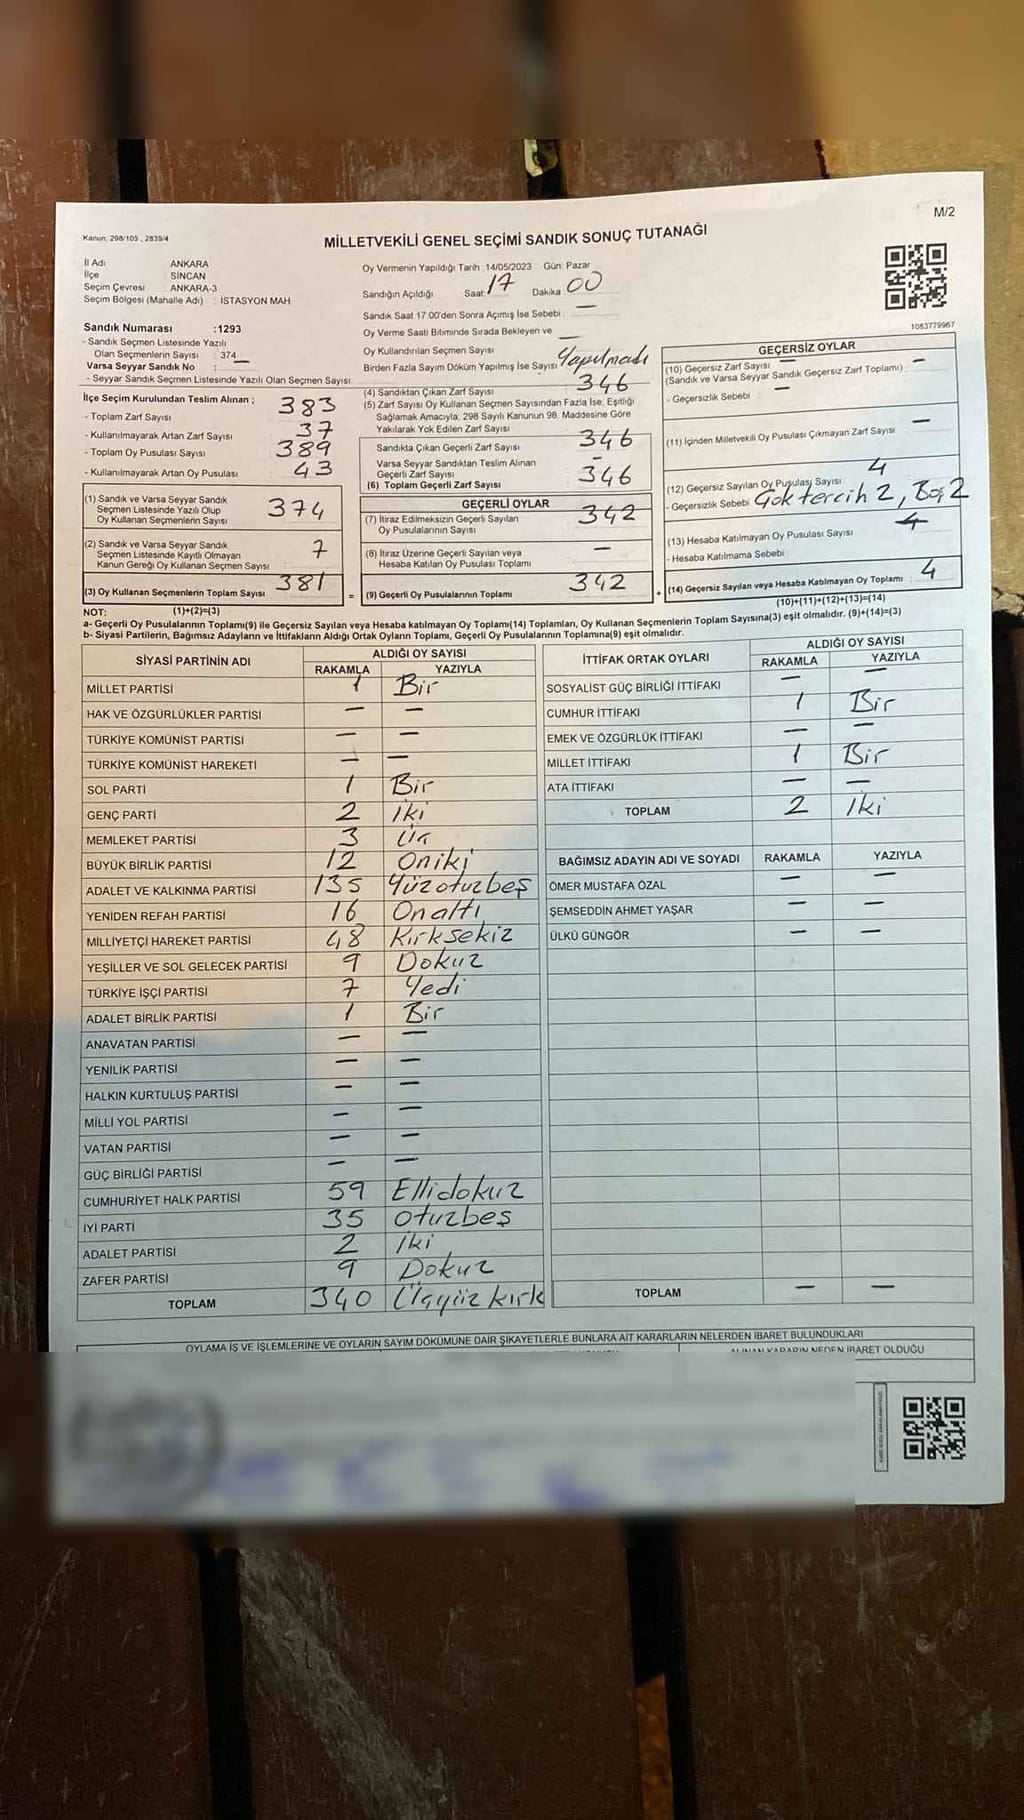 M/2
Kanun; 298/105 , 2839/4
MİLLETVEKİLİ GENEL SEÇİMİ SANDIK SONUÇ TUTANAĞI
İl Adı ANKARA
İlçe SİNCAN
Seçim Çevresi : ANKARA-3
Seçim Bölgesi (Mahalle Adı) : İSTASYON MAH
Sandık Numarası :1293
- Sandık Seçmen Listesinde Yazılı
Olan Seçmenlerin Sayısı : 374
Varsa Seyyar Sandık No :
- Seyyar Sandık Seçmen Listesinde Yazılı Olan Seçmen Sayısı:
İlçe Seçim Kurulundan Teslim Alınan ;
- Toplam Zarf Sayısı 383
- Kullanılmayarak Artan Zarf Sayısı 37
- Toplam Oy Pusulası Sayısı 389
- Kullanılmayarak Artan Oy Pusulası 43
(1) Sandık ve Varsa Seyyar Sandık
Seçmen Listesinde Yazılı Olup
Oy Kullanan Seçmenlerin Sayısı 374
(2) Sandık ve Varsa Seyyar Sandık
Seçmen Listesinde Kayıtlı Olmayan
Kanun Gereği Oy Kullanan Seçmen Sayısı 7
(3) Oy Kullanan Seçmenlerin Toplam Sayısı 381
Oy Vermenin Yapıldığı Tarih :14/05/2023 Gün: Pazar
Sandığın Açıldığı Saat: 17 Dakika 00
Sandık Saat 17:00'den Sonra Açımış İse Sebebi : —
Oy Verme Saati Bitiminde Sırada Bekleyen ve
Oy Kullandırılan Seçmen Sayısı —
Birden Fazla Sayım Döküm Yapılmış İse Sayısı Yapılmadı
(4) Sandıktan Çıkan Zarf Sayısı 346
(5) Zarf Sayısı Oy Kullanan Seçmen Sayısından Fazla İse; Eşitliği
Sağlamak Amacıyla; 298 Sayılı Kanunun 98. Maddesine Göre
Yakılarak Yok Edilen Zarf Sayısı
Sandıkta Çıkan Geçerli Zarf Sayısı 346
Varsa Seyyar Sandıktan Teslim Alınan
Geçerli Zarf Sayısı —
(6) Toplam Geçerli Zarf Sayısı 346
GEÇERLİ OYLAR
(7) İtiraz Edilmeksizin Geçerli Sayılan
Oy Pusulalarının Sayısı 342
(8) İtiraz Üzerine Geçerli Sayılan veya
Hesaba Katılan Oy Pusulası Toplamı —
= (9) Geçerli Oy Pusulalarının Toplamı 342 +
1083779967
GEÇERSİZ OYLAR
(10) Geçersiz Zarf Sayısı —
(Sandık ve Varsa Seyyar Sandık Geçersiz Zarf Toplamı) : —
- Geçersizlik Sebebi —
(11) İçinden Milletvekili Oy Pusulası Çıkmayan Zarf Sayısı —
(12) Geçersiz Sayılan Oy Pusulası Sayısı 4
- Geçersizlik Sebebi Çok tercih 2, Boş 2
(13) Hesaba Katılmayan Oy Pusulası Sayısı
- Hesaba Katılmama Sebebi :
(14) Geçersiz Sayılan veya Hesaba Katılmayan Oy Toplamı : 4
NOT: (1)+(2)=(3) (10)+(11)+(12)+(13)=(14)
a- Geçerli Oy Pusulalarının Toplamı(9) ile Geçersiz Sayılan veya Hesaba katılmayan Oy Toplamı(14) Toplamları, Oy Kullanan Seçmenlerin Toplam Sayısına(3) eşit olmalıdır. (9)+(14)=(3)
b- Siyasi Partilerin, Bağımsız Adayların ve İttifakların Aldığı Ortak Oyların Toplamı, Geçerli Oy Pusulalarının Toplamına(9) eşit olmalıdır.
SİYASİ PARTİNİN ADI ALDIĞI OY SAYISI
RAKAMLA YAZIYLA
MİLLET PARTİSİ 1 Bir
HAK VE ÖZGÜRLÜKLER PARTİSİ — —
TÜRKİYE KOMÜNİST PARTİSİ — —
TÜRKİYE KOMÜNİST HAREKETİ — —
SOL PARTİ 1 Bir
GENÇ PARTİ 2 iki
MEMLEKET PARTİSİ 3 Üç
BÜYÜK BİRLİK PARTİSİ 12 Oniki
ADALET VE KALKINMA PARTİSİ 135 Yüzotuzbeş
YENİDEN REFAH PARTİSİ 16 Onaltı
MİLLİYETÇİ HAREKET PARTİSİ 48 Kırksekiz
YEŞİLLER VE SOL GELECEK PARTİSİ 9 Dokuz
TÜRKİYE İŞÇİ PARTİSİ 7 Yedi
ADALET BİRLİK PARTİSİ 1 Bir
ANAVATAN PARTİSİ — —
YENİLİK PARTİSİ — —
HALKIN KURTULUŞ PARTİSİ — —
MİLLİ YOL PARTİSİ — —
VATAN PARTİSİ — —
GÜÇ BİRLİĞİ PARTİSİ — —
CUMHURİYET HALK PARTİSİ 59 Ellidokuz
İYİ PARTİ 35 otuzbeş
ADALET PARTİSİ 2 iki
ZAFER PARTİSİ 9 Dokuz
TOPLAM 340 Üçyüz kırk
İTTİFAK ORTAK OYLARI ALDIĞI OY SAYISI
RAKAMLA YAZIYLA
SOSYALİST GÜÇ BİRLİĞİ İTTİFAKI — —
CUMHUR İTTİFAKI 1 Bir
EMEK VE ÖZGÜRLÜK İTTİFAKI — —
MİLLET İTTİFAKI 1 Bir
ATA İTTİFAKI — —
TOPLAM 2 iki
BAĞIMSIZ ADAYIN ADI VE SOYADI RAKAMLA YAZIYLA
ÖMER MUSTAFA ÖZAL — —
ŞEMSEDDİN AHMET YAŞAR — —
ÜLKÜ GÜNGÖR — —
TOPLAM — —
OYLAMA İŞ VE İŞLEMLERİNE VE OYLARIN SAYIM DÖKÜMÜNE DAİR ŞİKAYETLERLE BUNLARA AİT KARARLARIN NELERDEN İBARET BULUNDUKLARI
ALINAN KARARIN NEDEN İBARET OLDUĞU